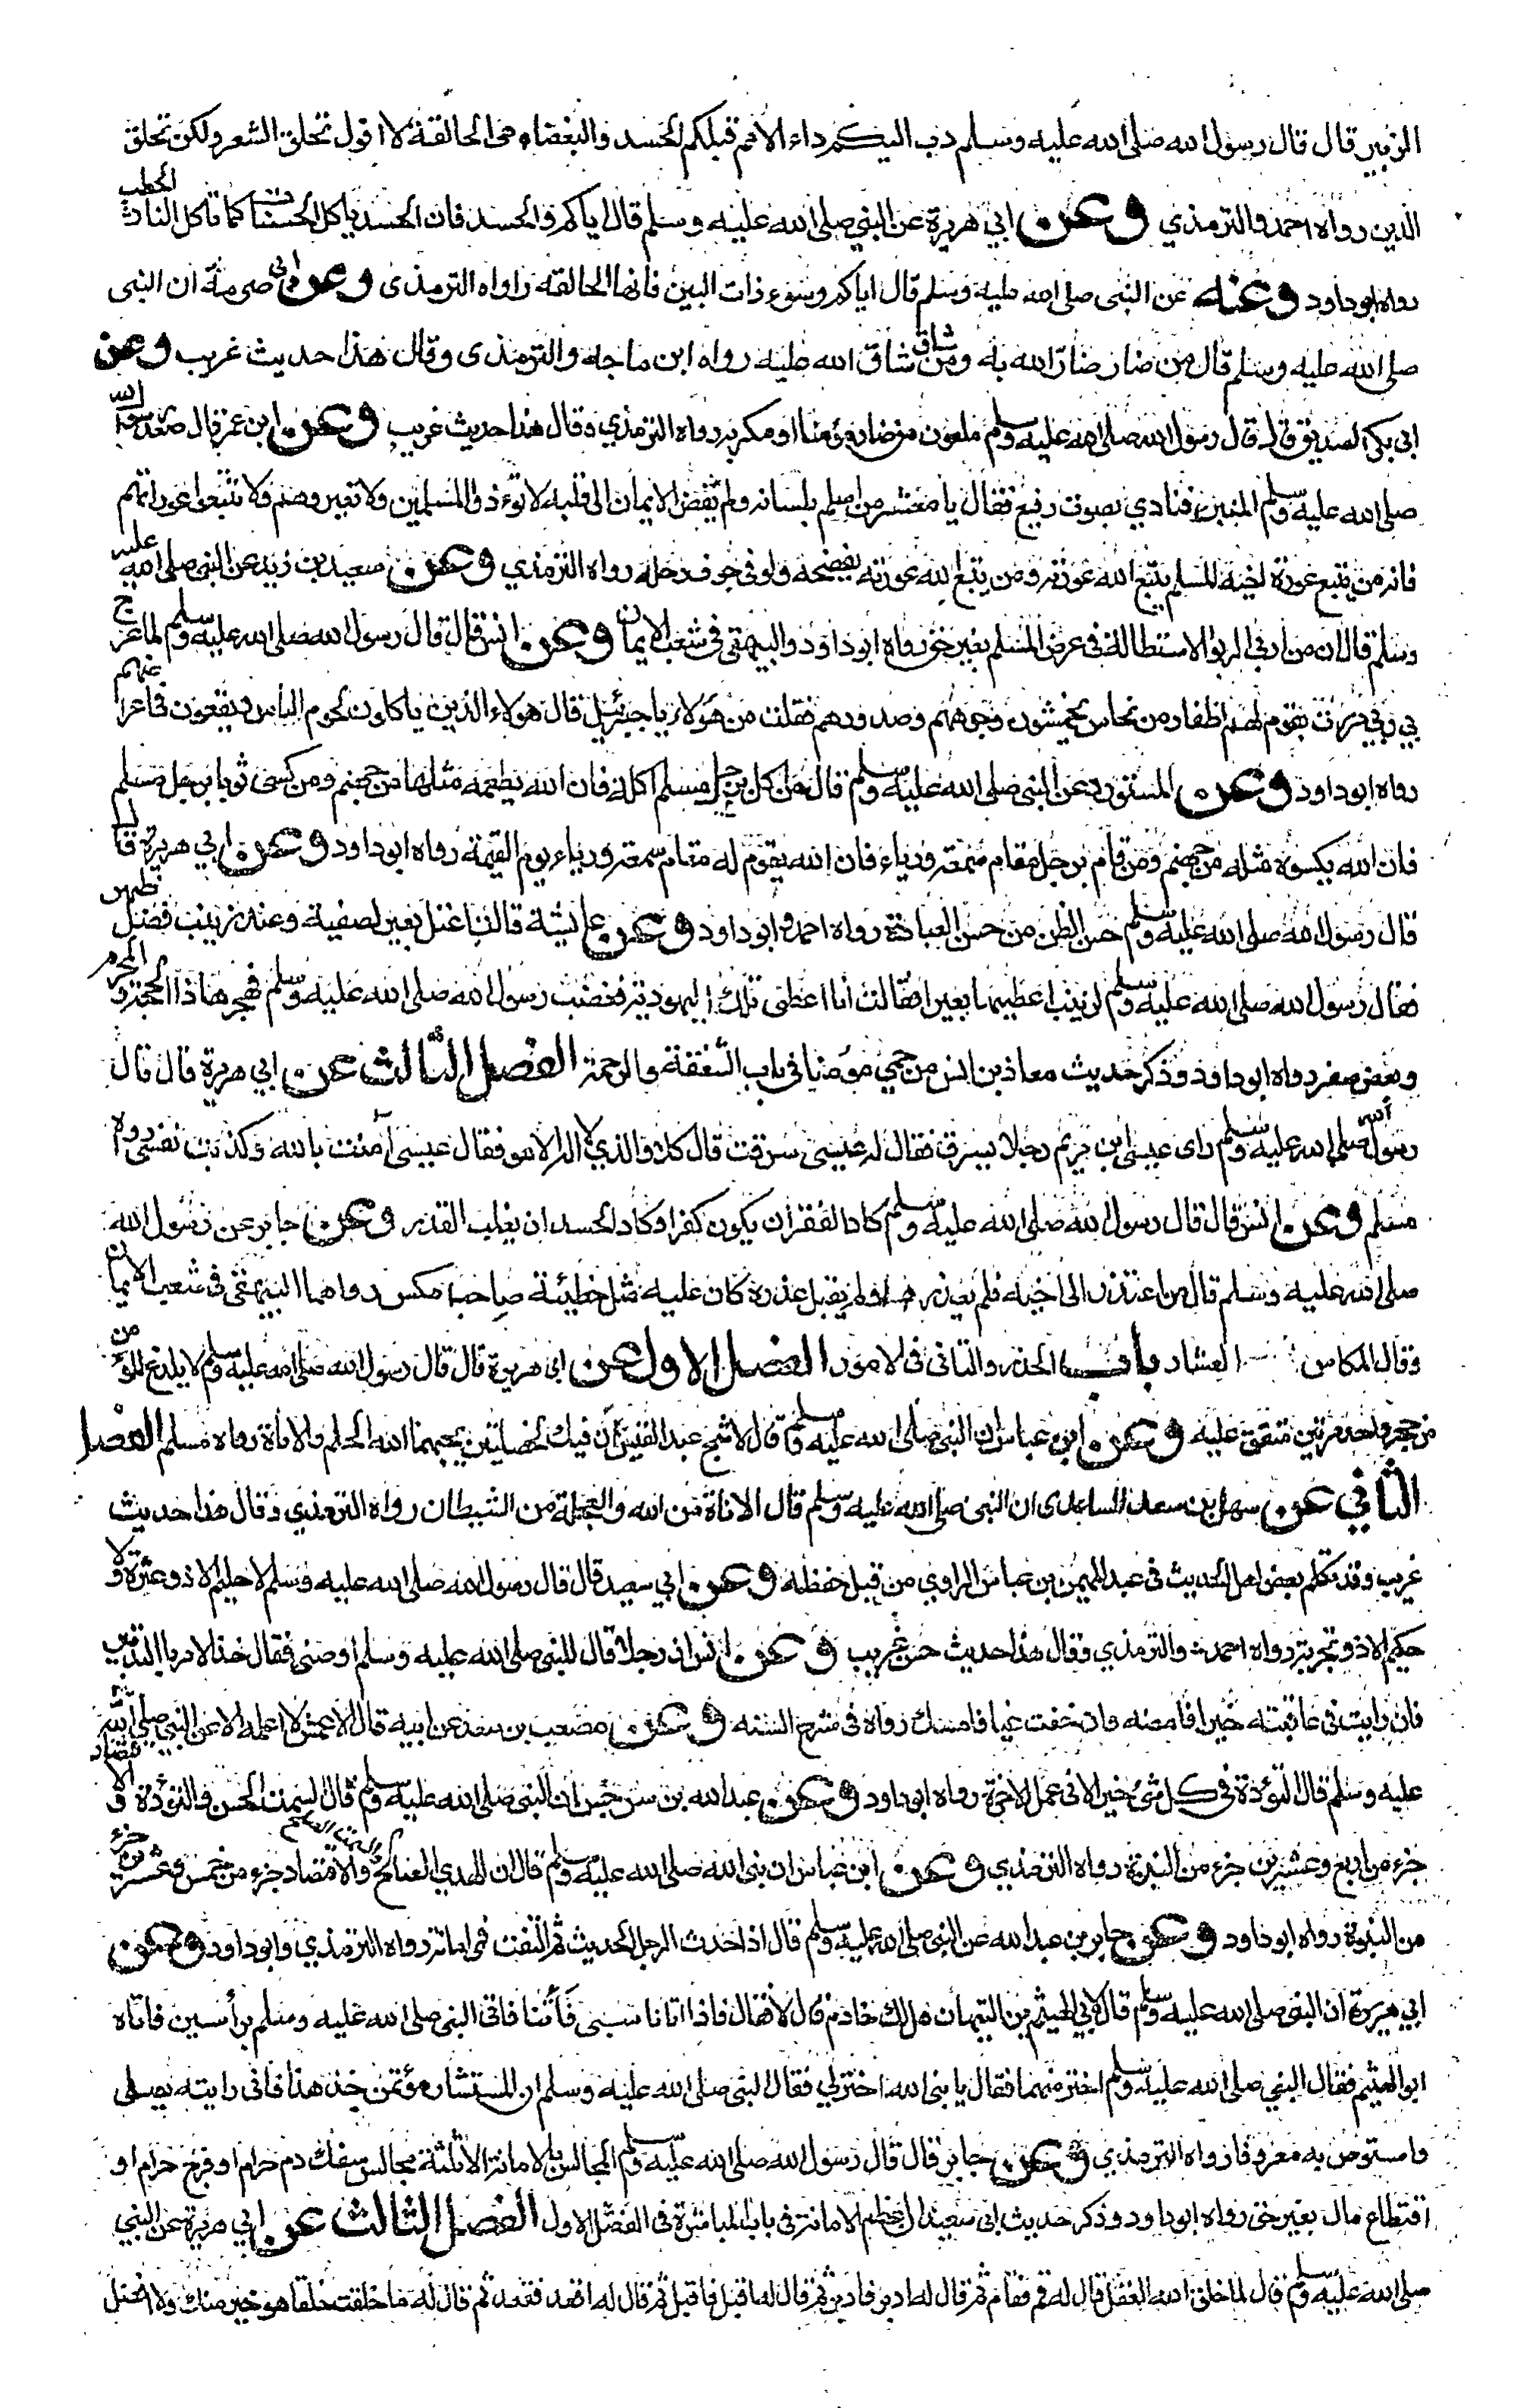 الزبير قال قال رسول الله صلى الله عليه وسلم دب اليكم داء الامم قبلكم الحسد والبغضاء هى الحالقة لا اقول تحلق الشعر ولكن تحلق
الدين رواه احمد والترمذي وعن ابي هريرة عن النبي صلى الله عليه وسلم قال اياكم والحسد فان الحسد ياكل الحسنات كما تاكل النار الحطب
رواه ابوداود وعنه عن النبى صلى الله عليه وسلم قال اياكم وسوء ذات البين فانها الحالقة رواه الترمذى وعن ابي صرمة ان النبى
صلى الله عليه وسلم قال من ضار ضار الله به ومن شاق شاق الله عليه رواه ابن ماجه والترمذى وقال هذا حديث غريب وعن
ابى بكر الصديق قال قال رسول الله صلى الله عليه وسلم ملعون من ضار مؤمنا او مكر به رواه الترمذي وقال هذا حديث غريب وعن ابن عمر قال صعد رسول الله
صلى الله عليه وسلم المنبر فنادي بصوت رفيع فقال يا معشر من اسلم بلسانه ولم يفض الايمان الى قلبه لا تؤذوا المسلمين ولا تعيروهم ولا تتبعوا عوراتهم
فانه من يتبع عورة اخيه المسلم يتبع الله عورته ومن يتبع الله عورته يفضحه ولو في جوف رحله رواه الترمذي وعن سعيد بن زيد عن النبى صلى الله عليه
وسلم قال ان من اربى الربوا الاستطالة فى عرض المسلم بغير حق رواه ابو داود والبيهقى فى شعب الايمان وعن انس قال قال رسول الله صلى الله عليه وسلم لما عرج
بي ربي مررت بقوم لهم اظفار من نحاس يخمشون وجوههم وصدورهم فقلت من هؤلاء يا جبرئيل قال هولاء الذين ياكلون لحوم الناس ويقعون فى اعراضهم
رواه ابوداود وعن المستورد عن النبى صلى الله عليه وسلم قال من اكل برجل مسلم اكلة فان الله يطعمه مثلها من جهنم ومن كسى ثوبا برجل مسلم
فان الله يكسوه مثله من جهنم ومن قام برجل مقام سمعة ورياء فان الله يقوم له مقام سمعة ورياء يوم القيمة رواه ابوداود وعن ابي هريرة قال
قال رسول الله صلى الله عليه وسلم حسن الظن من حسن العبادة رواه احمد وابوداود وعن عايشة قالت اعتل بعير لصفية وعند زينب فضل ظهر
فقال رسول الله صلى الله عليه وسلم لزينب اعطيها بعيرا فقالت أنا اعطى تلك اليهودية فغضب رسول الله صلى الله عليه وسلم فهجرها ذا الحجة والمحرم
وبعض صفر رواه ابوداود وذكر حديث معاذ بن انس من حمي مؤمنا فى باب الشفقة والرحمة الفصل الثالث عن ابي هريرة قال قال
رسول الله صلى الله عليه وسلم راى عيسى ابن مريم رجلا يسرق فقال له عيسى سرقت قال كلا والذي لا اله الا هو فقال عيسى آمنت بالله وكذبت نفسى رواه
مسلم وعن انس قال قال رسول الله صلى الله عليه وسلم كاد الفقر ان يكون كفرا وكاد الحسد ان يغلب القدر وعن جابر عن رسول الله
صلى الله عليه وسلم قال من اعتذر الى اخيه فلم يعذره او لم يقبل عذره كان عليه مثل خطيئة صاحب مكس رواهما البيهقى فى شعب الايمان
وقال المكاس العشار باب الحذر والتانى فى الامور الفصل الاول عن ابى هريرة قال قال رسول الله صلى الله عليه وسلم لا يلدغ المؤمن
من جحر واحد مرتين متفق عليه وعن ابن عباس ان النبى صلى الله عليه وسلم قال لاشج عبد القيس ان فيك لخصلتين يحبهما الله الحلم والاناة رواه مسلم الفصل
الثاني عن سهل بن سعد الساعدى ان النبى صلى الله عليه وسلم قال الاناة من الله والعجلة من الشيطان رواه الترمذي وقال هذا حديث
غريب وقد تكلم بعض اهل الحديث فى عبد المهيمن بن عباس الراوي من قبل حفظه وعن ابي سعيد قال قال رسول الله صلى الله عليه وسلم لا حليم الا ذو عثرة ولا
حكيم الا ذو تجربة رواه احمد والترمذي وقال هذا حديث حسن غريب وعن انس ان رجلا قال للنبى صلى الله عليه وسلم اوصنى فقال خذ الامر بالتدبير
فان رايت فى عاقبته خيرا فامضه وان خفت غيا فامسك رواه فى شرح السنه وعن مصعب بن سعد عن ابيه قال الاعمش لا اعلمه الا عن النبي صلى الله
عليه وسلم قال التؤدة فى كل شئ خير الا فى عمل الاخرة رواه ابوداود وعن عبد الله بن سرجس ان النبى صلى الله عليه وسلم قال السمت الحسن والتؤدة والاقتصاد
جزء من اربع وعشرين جزء من النبوة رواه الترمذي وعن ابن عباس ان نبى الله صلى الله عليه وسلم قال ان الهدي الصالح والسمت الصالح والاقتصاد جزء من خمس وعشرين جزء
من النبوة رواه ابوداود وعن جابر بن عبد الله عن النبى صلى الله عليه وسلم قال اذا حدث الرجل الحديث ثم التفت فهى امانة رواه الترمذي وابوداود وعن
ابي هريرة ان النبى صلى الله عليه وسلم قال لابي الهيثم بن التيهان هل لك خادم قال لا فقال فاذا اتانا سبى فأتنا فاتى النبى صلى الله عليه وسلم برأسين فاتاه
ابو الهيثم فقال النبى صلى الله عليه وسلم اختر منهما فقال يا نبى الله اختر لي فقال النبى صلى الله عليه وسلم ان المستشار مؤتمن خذ هذا فانى رايته يصلى
واستوص به معروفا رواه الترمذي وعن جابر قال قال رسول الله صلى الله عليه وسلم المجالس بالامانة الا ثلثة مجالس سفك دم حرام او فرج حرام او
اقتطاع مال بغير حق رواه ابوداود وذكر حديث ابى سعيد ان اعظم الامانة فى باب المباشرة فى الفصل الاول الفصل الثالث عن ابي هريرة عن النبي
صلى الله عليه وسلم قال لما خلق الله العقل قال له قم فقام ثم قال له ادبر فادبر ثم قال له اقبل فاقبل ثم قال له اقعد فقعد ثم قال له ما خلقت خلقا هو خير منك ولا افضل